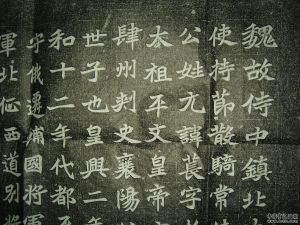 魏故侍中鎮北
使持節散騎常
公姓元諱萇字
太祖平文皇帝
肆州刺史襄陽
世子也皇興二年
和十二年代都平
守俄遷國將軍
軍北征西道別將